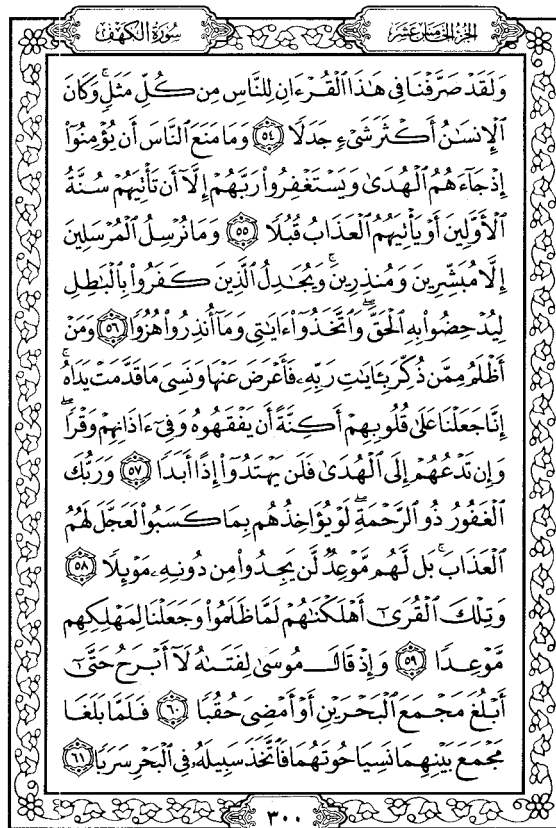 سُورَةُ الْكَهْفِ
الجُزْءُ الخَامِسُ عَشَرَ
وَلَقَدْ صَرَّفْنَا فِي هَٰذَا ٱلْقُرْءَانِ لِلنَّاسِ مِن كُلِّ مَثَلٍۚ وَكَانَ
ٱلْإِنسَٰنُ أَكْثَرَ شَىْءٍ جَدَلًا ٥٤ وَمَا مَنَعَ ٱلنَّاسَ أَن يُؤْمِنُوٓا۟
إِذْ جَآءَهُمُ ٱلْهُدَىٰ وَيَسْتَغْفِرُوا۟ رَبَّهُمْ إِلَّآ أَن تَأْتِيَهُمْ سُنَّةُ
ٱلْأَوَّلِينَ أَوْ يَأْتِيَهُمُ ٱلْعَذَابُ قُبُلًا ٥٥ وَمَا نُرْسِلُ ٱلْمُرْسَلِينَ
إِلَّا مُبَشِّرِينَ وَمُنذِرِينَۚ وَيُجَٰدِلُ ٱلَّذِينَ كَفَرُوا۟ بِٱلْبَٰطِلِ
لِيُدْحِضُوا۟ بِهِ ٱلْحَقَّۖ وَٱتَّخَذُوٓا۟ ءَايَٰتِى وَمَآ أُنذِرُوا۟ هُزُوًا ٥٦ وَمَنْ
أَظْلَمُ مِمَّن ذُكِّرَ بِـَٔايَٰتِ رَبِّهِۦ فَأَعْرَضَ عَنْهَا وَنَسِىَ مَا قَدَّمَتْ يَدَاهُۚ
إِنَّا جَعَلْنَا عَلَىٰ قُلُوبِهِمْ أَكِنَّةً أَن يَفْقَهُوهُ وَفِىٓ ءَاذَانِهِمْ وَقْرًاۖ
وَإِن تَدْعُهُمْ إِلَى ٱلْهُدَىٰ فَلَن يَهْتَدُوٓا۟ إِذًا أَبَدًا ٥٧ وَرَبُّكَ
ٱلْغَفُورُ ذُو ٱلرَّحْمَةِۖ لَوْ يُؤَاخِذُهُم بِمَا كَسَبُوا۟ لَعَجَّلَ لَهُمُ
ٱلْعَذَابَۚ بَل لَّهُم مَّوْعِدٌ لَّن يَجِدُوا۟ مِن دُونِهِۦ مَوْئِلًا ٥٨
وَتِلْكَ ٱلْقُرَىٰٓ أَهْلَكْنَٰهُمْ لَمَّا ظَلَمُوا۟ وَجَعَلْنَا لِمَهْلِكِهِم
مَّوْعِدًا ٥٩ وَإِذْ قَالَ مُوسَىٰ لِفَتَىٰهُ لَآ أَبْرَحُ حَتَّىٰٓ
أَبْلُغَ مَجْمَعَ ٱلْبَحْرَيْنِ أَوْ أَمْضِىَ حُقُبًا ٦٠ فَلَمَّا بَلَغَا
مَجْمَعَ بَيْنِهِمَا نَسِيَا حُوتَهُمَا فَٱتَّخَذَ سَبِيلَهُۥ فِى ٱلْبَحْرِ سَرَبًا ٦١
٣٠٠